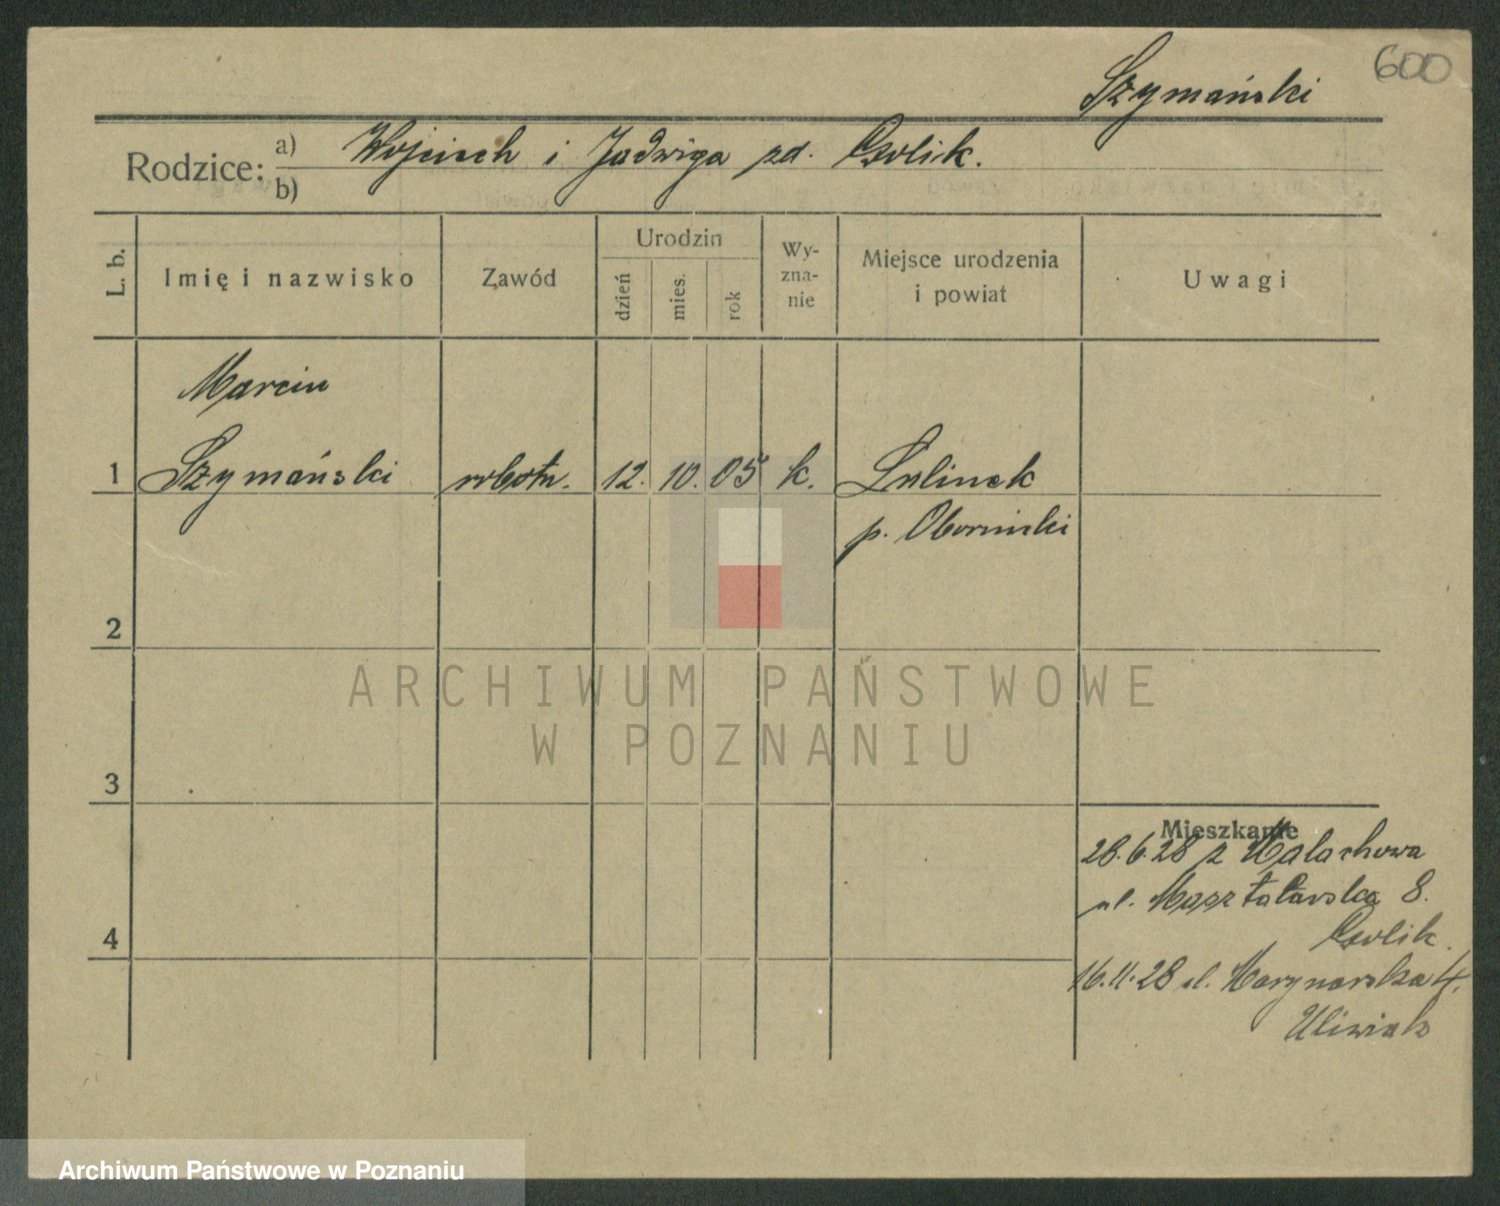 600
Szymański
Rodzice: a) Wojciech i Jadwiga zd. Csolik.
b)
L. b. Imię i nazwisko Zawód Urodzin dzień mies. rok Wy-zna-nie Miejsce urodzenia i powiat Uwagi
Marcin
1 Szymański robotn. 12. 10. 05 k. Lulinek
p. Obornicki
2
3
4
Mieszkanie
28.6.28 z Małachowa
ul. Masztalarska 8.
Csolik.
16.11.28 ul. Marynarska 4.
ARCHIWUM PAŃSTWOWE
W POZNANIU
Archiwum Państwowe w Poznaniu